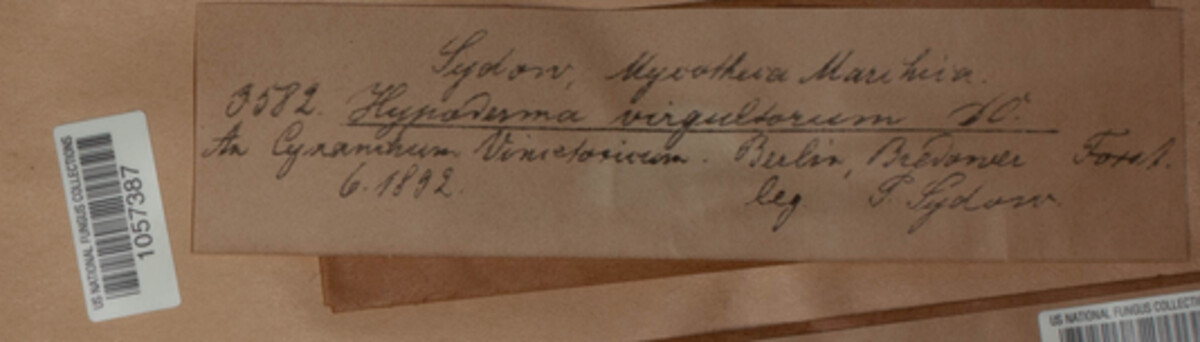 Sydow, Mycotheca Marchica.
3582. Hypoderma virgultorum DC.
An Cynanchum Vincetoxicum. Berlin, Bredower Forst.
6. 1892.
leg P. Sydow.
US NATIONAL FUNGUS COLLECTIONS
1057387
US NATIONAL FUNGUS COLLECTIONS